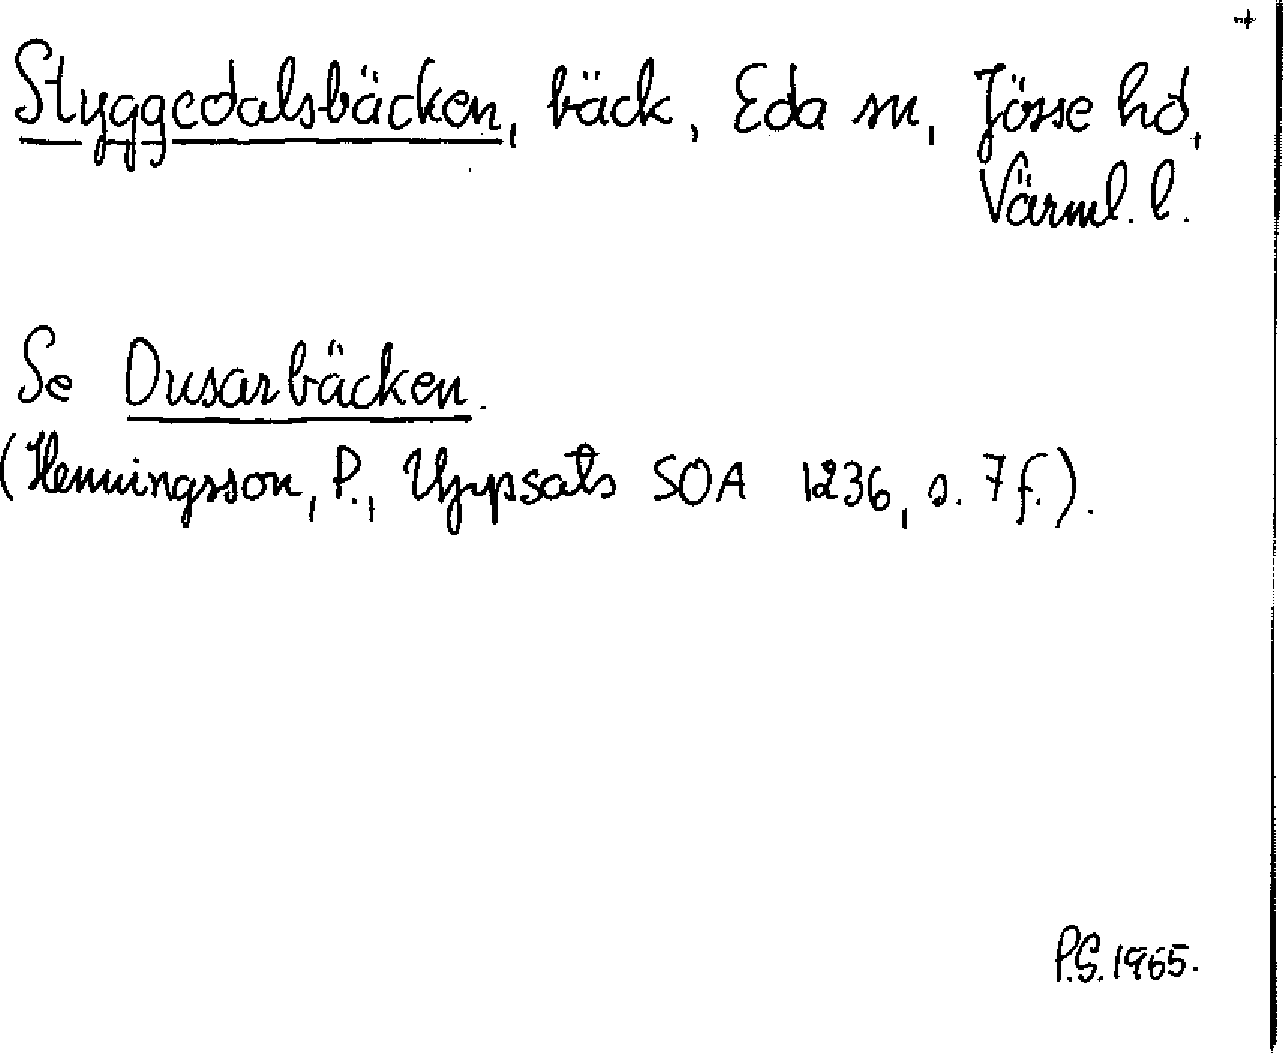 Styggedalsbäcken, bäck, Eda sn, Jösse hd,
Värml. l.
Se Dusarbäcken.
(Henningsson, P., Uppsats SOA 1236, s. 7 f.).
P.S. 1965.